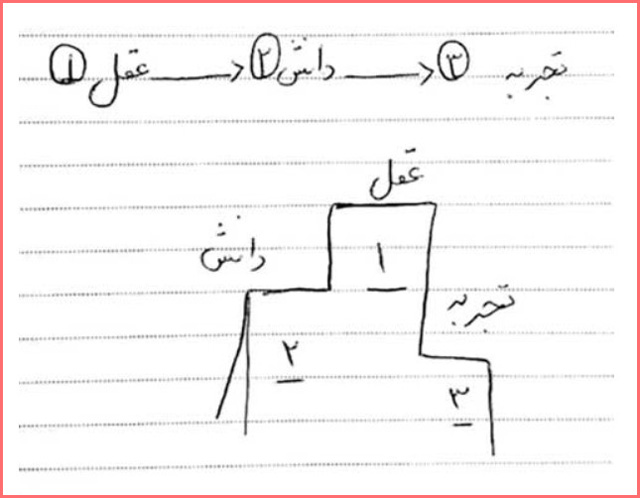 ① عقل → ② دانش → ③ تجربه
عقل
دانش
۱
تجربه
۲
۳